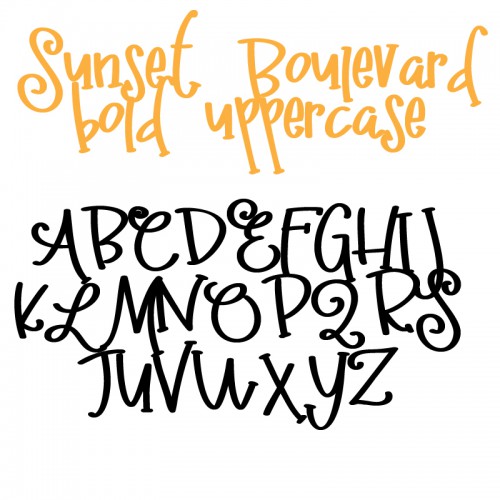 Sunset Boulevard
bold uppercase
ABCDEFGHIJ
KLMNOPQRS
TUVWXYZ